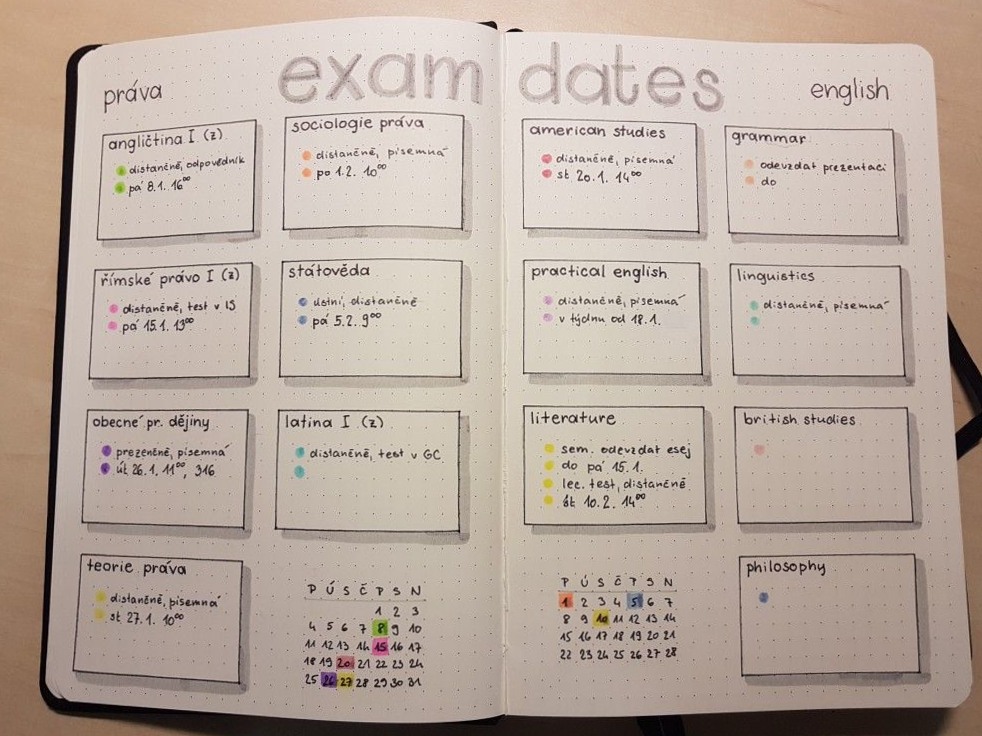 práva
exam dates
english
angličtina I (z)
distančně, odpovědník
pá 8.1. 16⁰⁰
sociologie práva
distančně, písemná
po 1.2. 10⁰⁰
římské právo I (z)
distančně, test v IS
pá 15.1. 13⁰⁰
státověda
ústní, distančně
pá 5.2. 9⁰⁰
obecné pr. dějiny
prezenčně, písemná
út 26.1. 11⁰⁰, 316
latina I (z)
distančně, test v GC
teorie práva
distančně, písemná
st 27.1. 10⁰⁰
P Ú S Č P S N
1 2 3
4 5 6 7 8 9 10
11 12 13 14 15 16 17
18 19 20 21 22 23 24
25 26 27 28 29 30 31
american studies
distančně, písemná
st 20.1. 14⁰⁰
grammar
odevzdat prezentaci
do
practical english
distančně, písemná
v týdnu od 18.1.
linguistics
distančně, písemná
literature
sem. odevzdat esej
do pá 15.1.
lec. test, distančně
st 10.2. 14⁰⁰
british studies
P Ú S Č P S N
1 2 3 4 5 6 7
8 9 10 11 12 13 14
15 16 17 18 19 20 21
22 23 24 25 26 27 28
philosophy